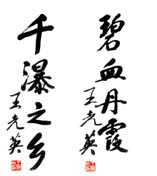 碧血丹霞
王光英
千瀑之乡
王光英